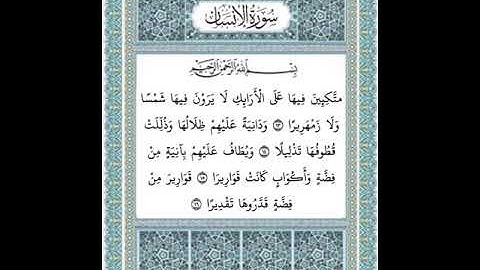 سُورَةُ الْإِنْسَانِ
بِسْمِ اللَّهِ الرَّحْمَنِ الرَّحِيمِ
مُتَّكِئِينَ فِيهَا عَلَى الْأَرَائِكِ لَا يَرَوْنَ فِيهَا شَمْسًا
وَلَا زَمْهَرِيرًا ١٣ وَدَانِيَةً عَلَيْهِمْ ظِلَالُهَا وَذُلِّلَتْ
قُطُوفُهَا تَذْلِيلًا ١٤ وَيُطَافُ عَلَيْهِمْ بِآنِيَةٍ مِنْ
فِضَّةٍ وَأَكْوَابٍ كَانَتْ قَوَارِيرَا ١٥ قَوَارِيرَ مِنْ
فِضَّةٍ قَدَّرُوهَا تَقْدِيرًا ١٦